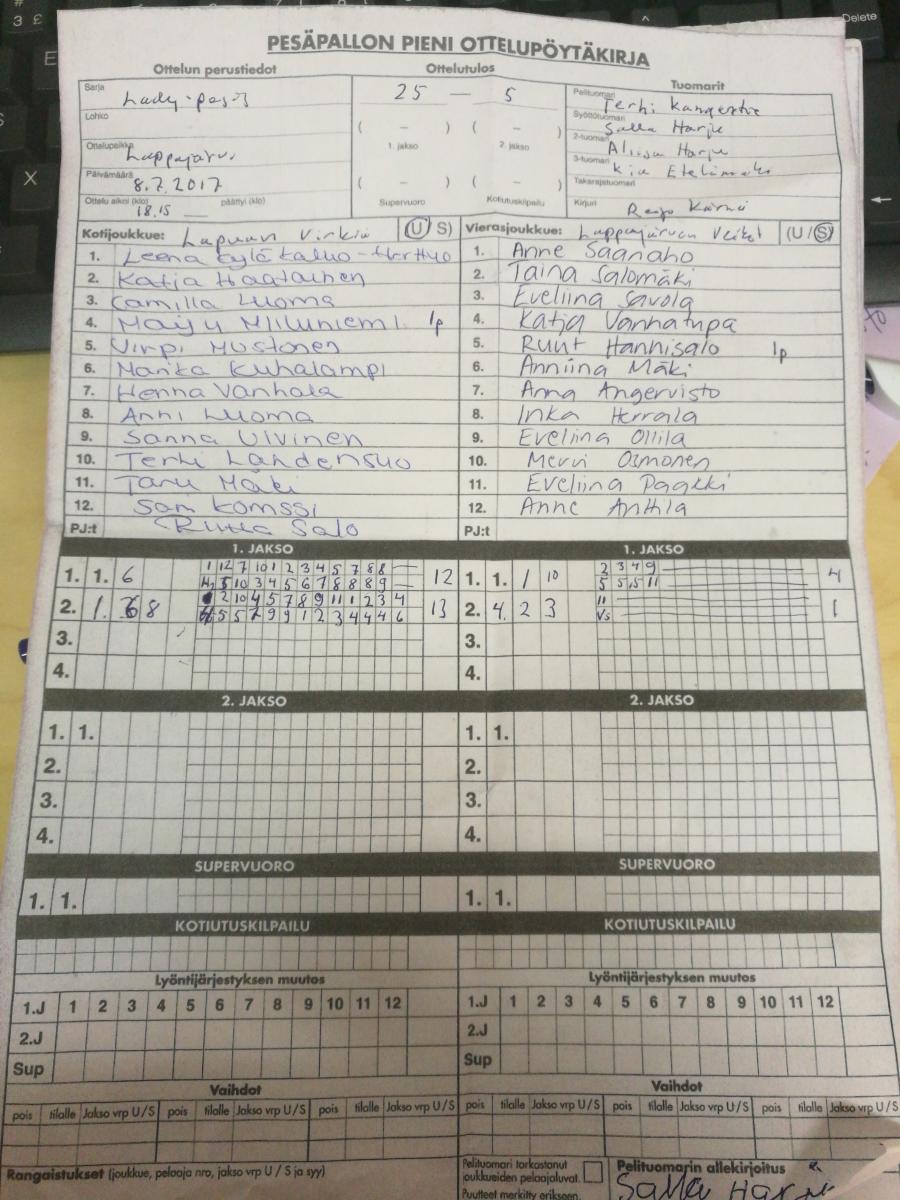 PESÄPALLON PIENI OTTELUPÖYTÄKIRJA
Ottelun perustiedot
Ottelutulos
Tuomarit
Sarja Lady-pesis
Lohko
Ottelupaikka Lappajärvi
Päivämäärä 8.7.2017
Ottelu alkoi (klo) 18.15 päättyi (klo)
25 — 5
( – ) ( – )
1. jakso 2. jakso
( – ) ( – )
Supervuoro Kotiutuskilpailu
Pelituomari Terhi
Syöttötuomari Salla Harju
2-tuomari Aliisa Harju
3-tuomari Kia Etelämäki
Takarajatuomari
Kirjuri Reijo
Kotijoukkue: Lapuan Virkiä (U/S)
1. Leena
2. Katja Haatainen
3. Camilla Luoma
4. Maiju 1p
5. Virpi Mustonen
6. Marika Kuhalampi
7. Henna Vanhala
8. Anni Luoma
9. Sanna Ulvinen
10. Terhi Lahdensuo
11. Taru Mäki
12. Sari Komssi
PJ:t Riitta Salo
Vierasjoukkue: Lappajärven Veikot (U/S)
1. Anne Saanaho
2. Taina Salomäki
3. Eveliina Savola
4. Katja Vanhatupa
5. Ruut Hannisalo 1p
6. Anniina Mäki
7. Anna Angervisto
8. Inka Herrala
9. Eveliina Ollila
10. Mervi Osmonen
11. Eveliina Pagkki
12. Anne Anttila
PJ:t
1. JAKSO
1. 1. 6 1 12 7 10 1 2 3 4 5 7 8 8 12
10 3 4 5 6 7 8 8 8 9
2. 1. 8 2 10 4 5 7 8 9 11 1 2 3 4 13
5 5 7 9 9 1 2 3 4 4 4 6
3.
4.
1. JAKSO
1. 1. 1 10 2 3 4 9 4
5 5 5 11
2. 4. 2 3 11 1
Vs
3.
4.
2. JAKSO
1. 1.
2.
3.
4.
2. JAKSO
1. 1.
2.
3.
4.
SUPERVUORO
1. 1.
SUPERVUORO
1. 1.
KOTIUTUSKILPAILU
KOTIUTUSKILPAILU
Lyöntijärjestyksen muutos
1.J 1 2 3 4 5 6 7 8 9 10 11 12
2.J
Sup
Lyöntijärjestyksen muutos
1.J 1 2 3 4 5 6 7 8 9 10 11 12
2.J
Sup
Vaihdot
pois tilalle Jakso vrp U/S pois tilalle Jakso vrp U/S pois tilalle Jakso vrp U/S
Vaihdot
pois tilalle Jakso vrp U/S pois tilalle Jakso vrp U/S pois tilalle Jakso vrp U/S
Rangaistukset (joukkue, pelaaja nro, jakso vrp U / S ja syy)
Pelituomari tarkastanut
joukkueiden pelaajaluvat.
Puutteet merkitty erikseen.
Pelituomarin allekirjoitus
Salla Harju
Delete